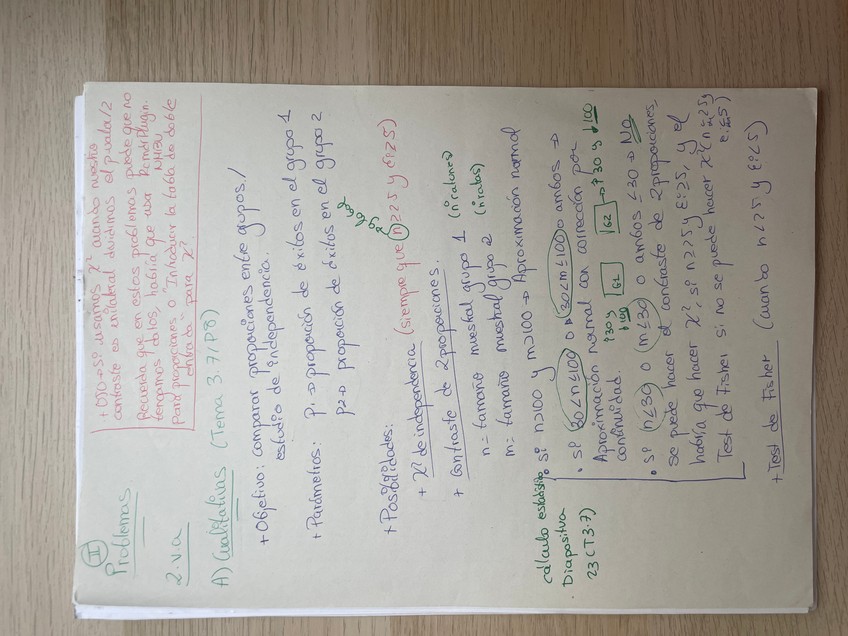 II
Problemas
+ OJO → si usamos χ² cuando nuestro
contraste es unilateral dividimos el p-valor/2
Recuerda que en estos problemas puede que no
tengamos datos, habría que usar RcmdrPlugin.
NMBU
para proporciones o "Introducir la tabla de doble
entrada" para χ².
2 v.a
A) Cualitativas (Tema 3.7/P8)
+ Objetivo: comparar proporciones entre grupos /
estudio de independencia.
+ Parámetros: p1 → proporción de éxitos en el grupo 1
p2 → proporción de éxitos en el grupo 2
+ Posibilidades:
global
+ χ² de independencia (siempre que n≥25 y Ei≥5)
+ Contraste de 2 proporciones.
n = tamaño muestral grupo 1 (nº ratones)
m = tamaño muestral grupo 2 (nº rabos)
cálculo estadístico
Diapositiva
23 (T3.7)
• Si n>100 y m>100 → Aproximación normal
• Si 30<n≤100 o 30<m≤100 o ambos →
Aproximación normal con corrección por
continuidad.
↑30 y ↓100
62
62
→ ↑30 y ↓100
• Si n≤30 o m≤30 o ambos ≤30 → No
se puede hacer el contraste de 2 proporciones,
habría que hacer χ², si n≥25 y Ei≥5, y el
Test de Fisher si no se puede hacer χ² (n≤25 y
Ei≤5)
+ Test de Fisher (cuando n<25 y Ei<5)